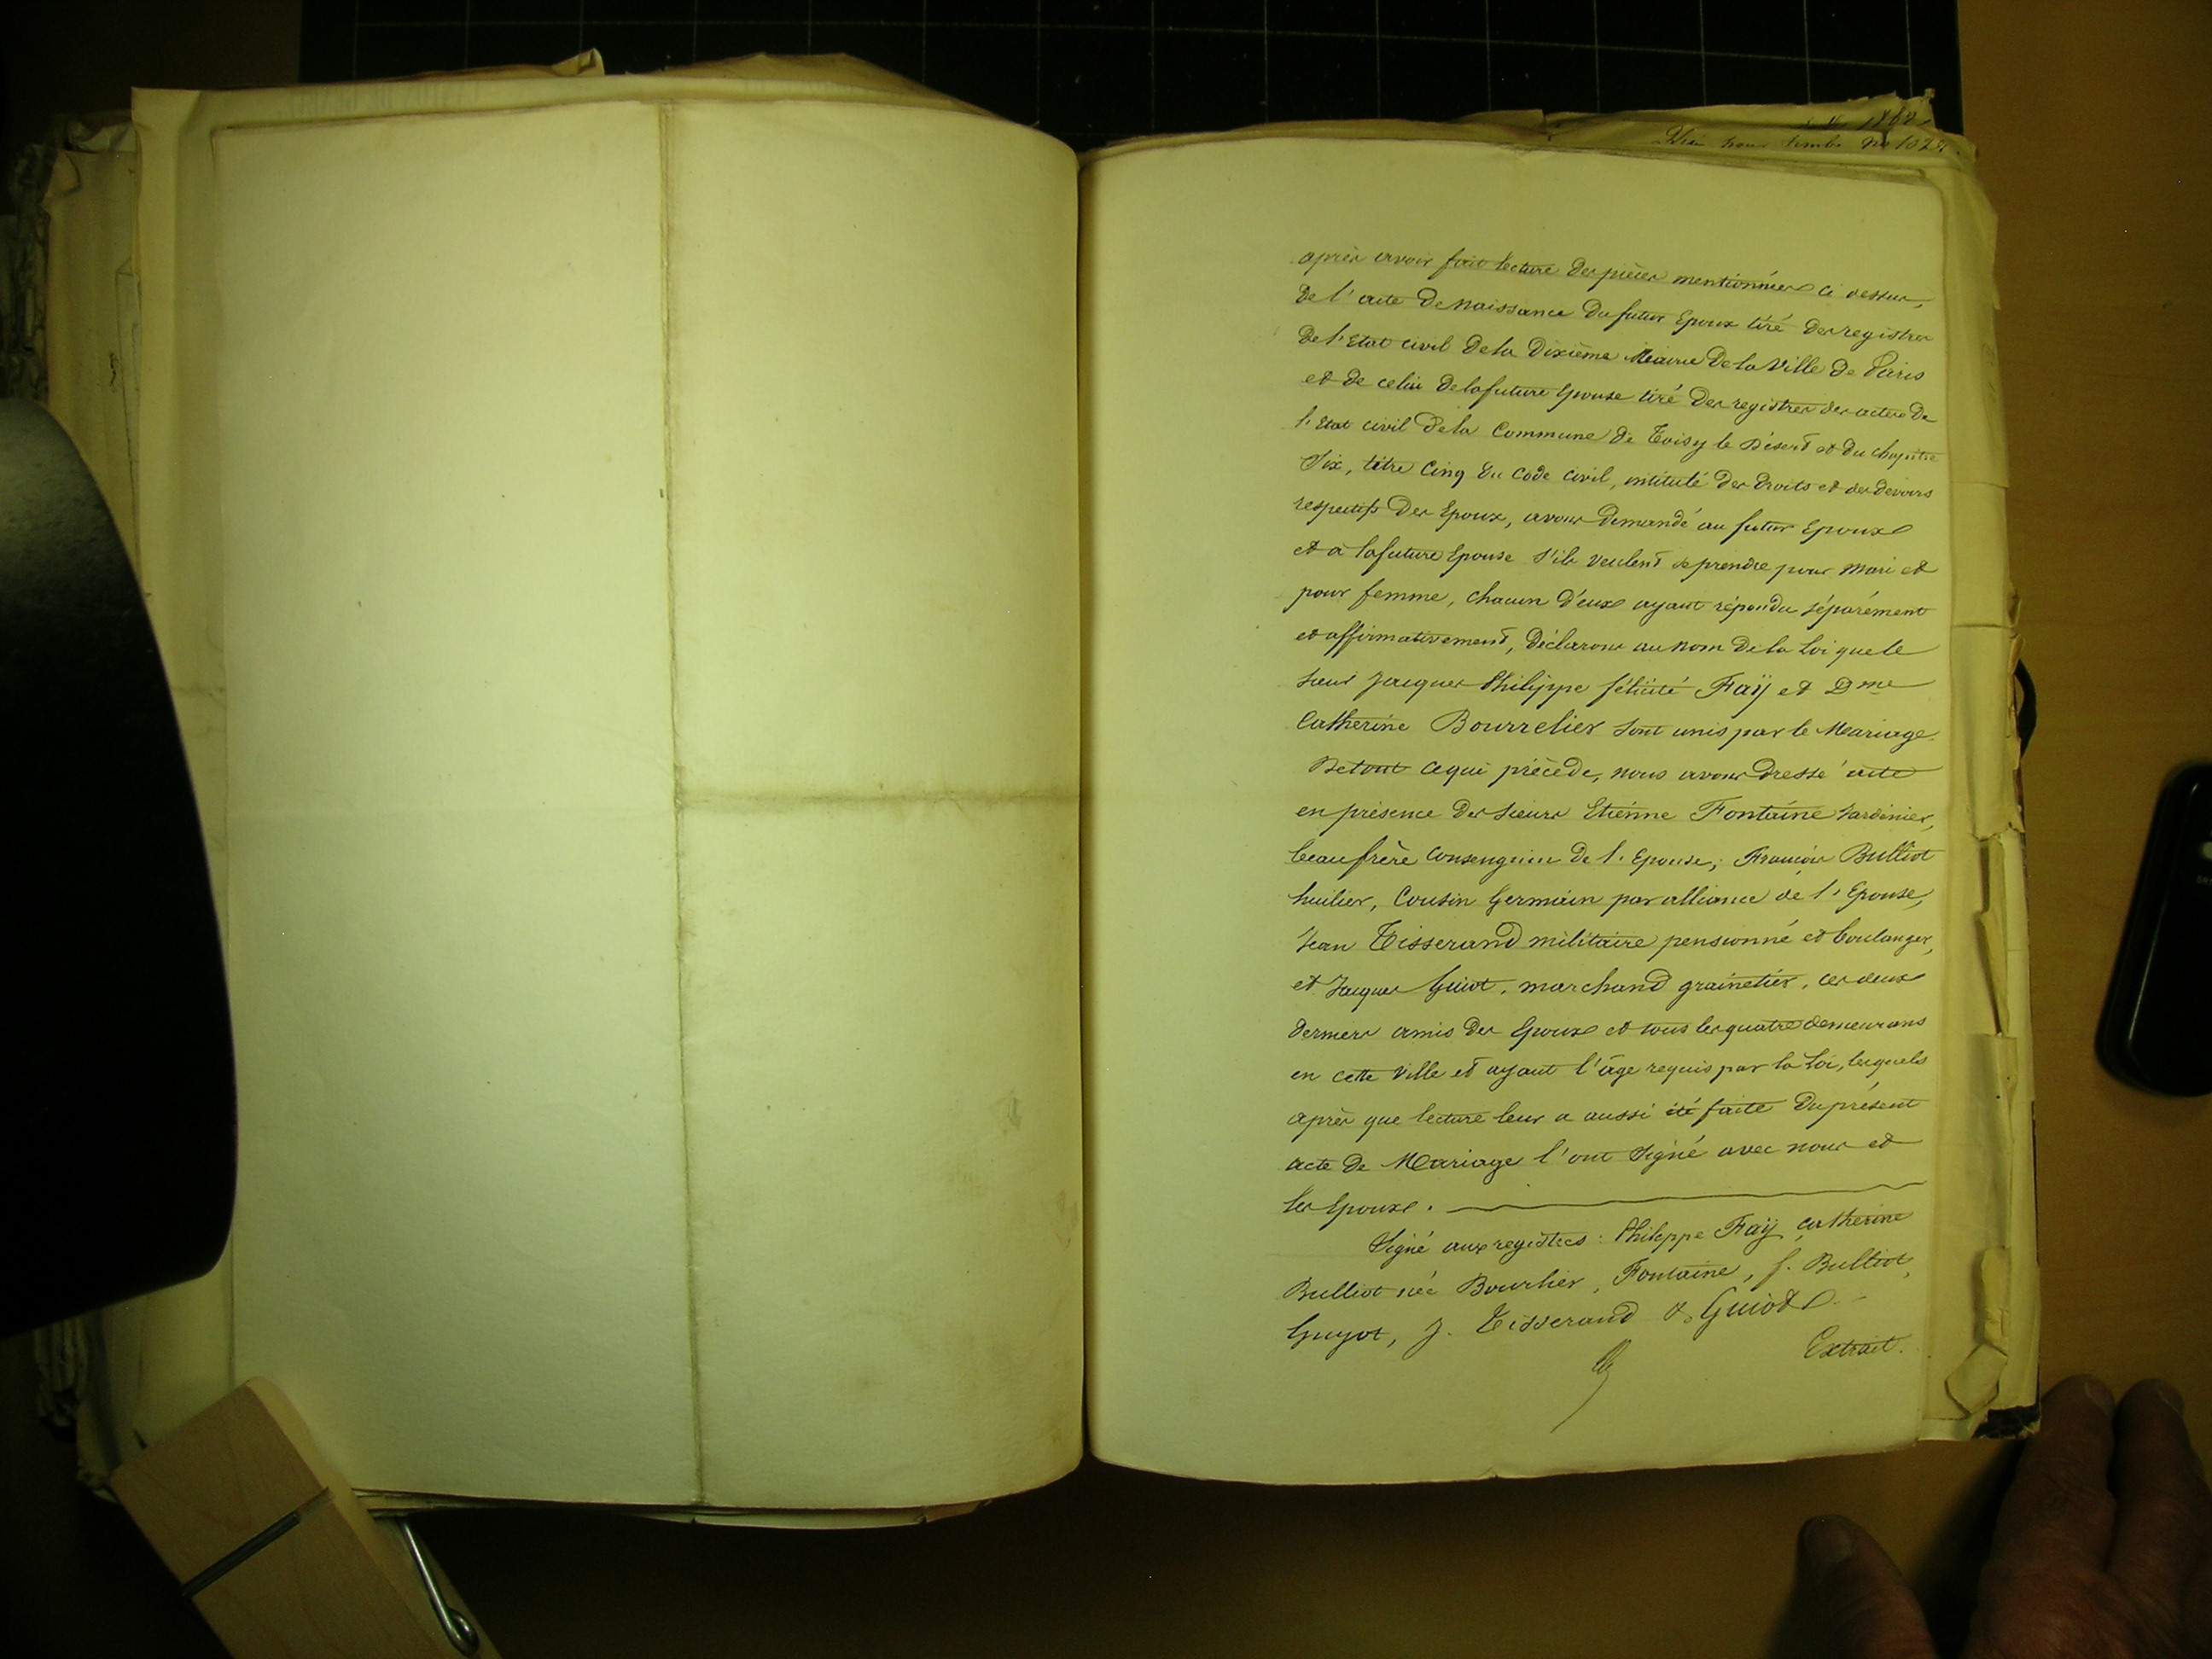 1862
Visé pour timbre no
après avoir fait lecture des pièces mentionnées ci dessus,
de l'acte de Naissance du futur Epoux tiré des registres
de l'Etat civil de la Dixième Mairie de la Ville de Paris
et de celui de la future Epouse tiré des registres des actes de
l'Etat civil de la Commune de Toisy le Désert et du chapitre
Six, titre Cinq du Code Civil, intitulé des droits et des devoirs
respectifs des Epoux, avons demandé au futur Epoux
et à la future Epouse s'ils veulent se prendre pour mari et
pour femme, chacun d'eux ayant répondu séparément
et affirmativement, déclarons au nom de la Loi que le
Sieur Jacques Philippe félicité Faÿ et Dme
Catherine Bourrelier sont unis par le Mariage.
De tout ce qui précède, nous avons dressé acte
en présence des Sieurs Etienne Fontaine Jardinier,
beau frère consenguin de l'Epouse; François Bulliot
huilier, Cousin Germain par alliance de l'Epouse,
Jean Tisserand militaire pensionné et boulanger,
et Jacques Guiot, marchand grainetier, ces deux
derniers amis des Epoux et tous les quatre demeurans
en cette Ville et ayant l'âge requis par la Loi, lesquels
après que lecture leur a aussi été faite du présent
acte de Mariage l'ont signé avec nous et
les Epoux.
Signé aux registres : Philippe Faÿ, Catherine
Bulliot née Bourlier, Fontaine, f. Bulliot,
Guyot, J. Tisserand & Guiot
Extrait.